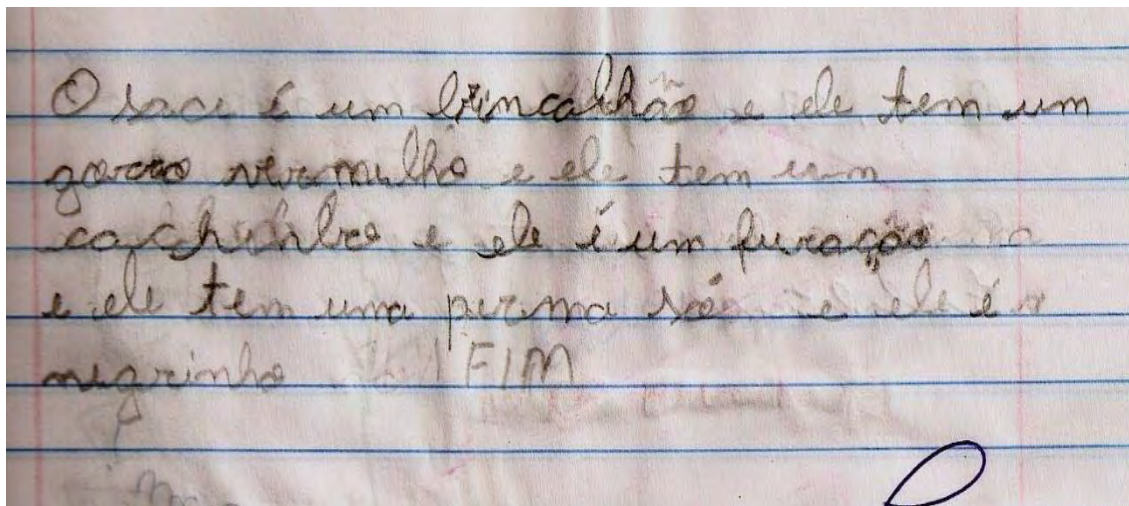 O saci é um brincalhão e ele tem um
gorro vermulho e ele tem um
cachinbo e ele é um furação
e ele tem uma perma só e ele é
negrinho FIM